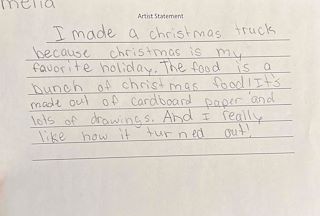 melia
Artist Statement
I made a christmas truck
because christmas is my
favorite holiday. The food is a
bunch of christmas food! It's
made out of cardboard paper and
lots of drawings. And I really
like how it turned out!